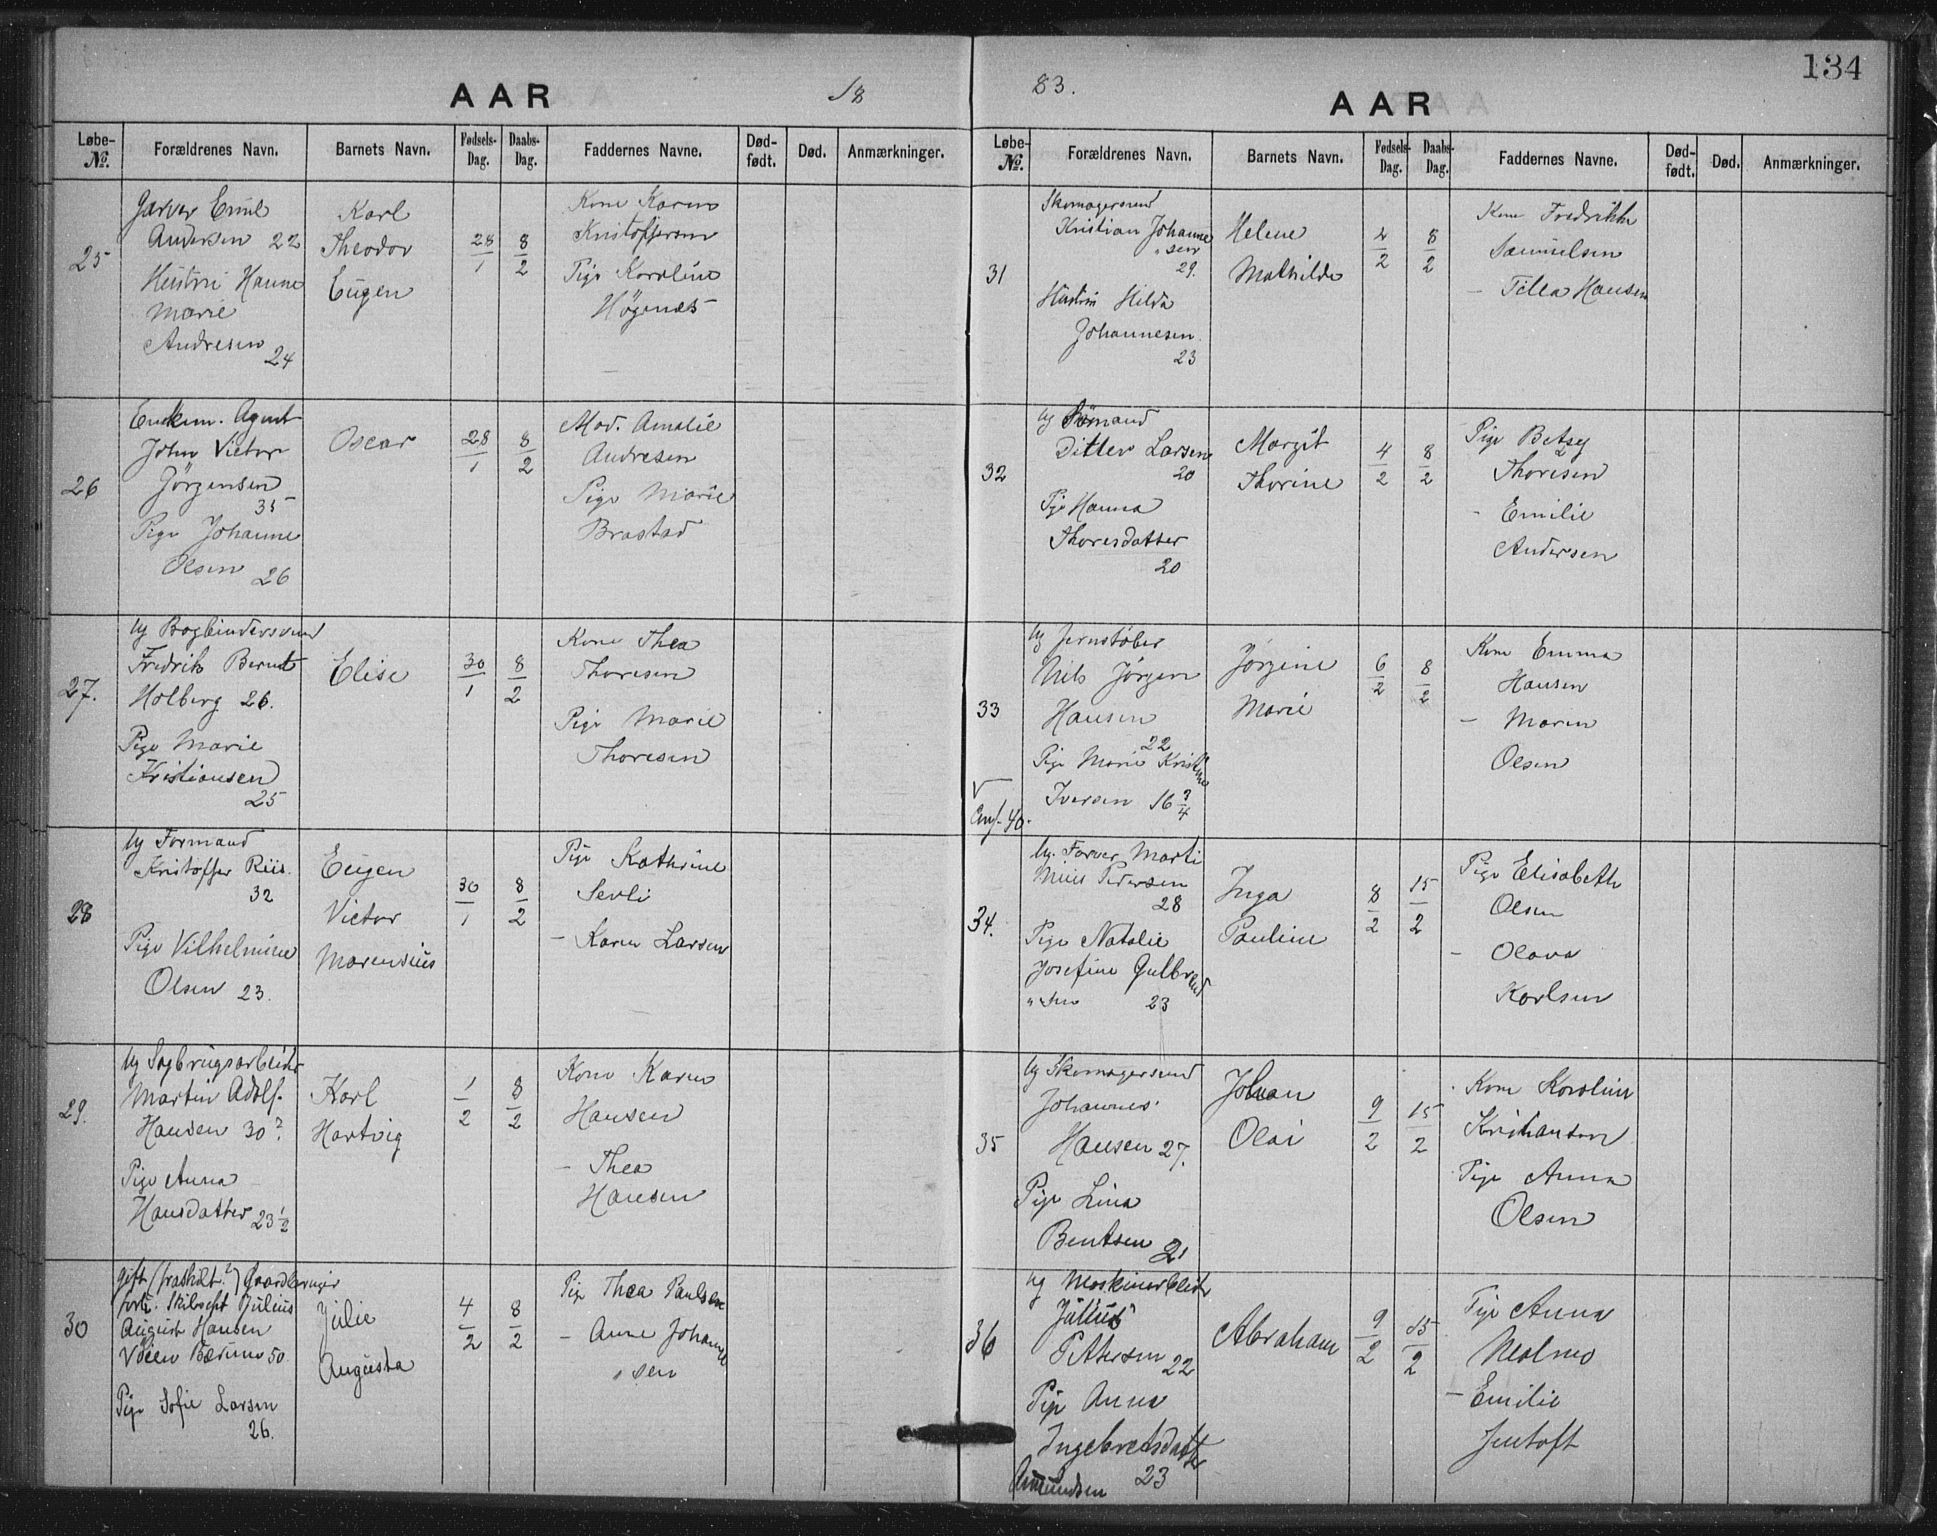 134
AAR 18
Løbe-№. Forældrenes Navn. Barnets Navn. Fødsels-Dag. Daabs-Dag. Faddernes Navne. Død-født. Død. Anmærkninger.
25
Garver Emil
Andersen 22
Hustru Hanne
Marie
Andresen 24
Karl
Theodor
Eugen
28/1
8/2
Kone Karen
Kristoffersen
Pige Karoline
Høgenæs
26
Agent
John Victor
Jörgensen
35
Pige Johanne
Olsen 26
Oscar
28/1
8/2
Mad. Amalie
Andresen
Pige Marie
Brastad
27.
Ug Bogbindersvend
Fredrik Bernt
Holberg 26.
Pige Marie
Kristiansen
25
Elise
30/1
8/2
Kone Thea
Thoresen
Pige Marie
Thoresen
28
Ug Formand
Kristoffer Riis.
32
Pige Vilhelmine
Olsen 23.
Eugen
Victor
Marensius
30/1
8/2
Pige Kathrine
Sevli
- Karen Larsen
29.
Ug Sagbrugsarbeider
Martin Adolf
Hansen 30?
Pige Anna
Hansdatter 23 1/2
Karl
Hartvig
1/2
8/2
Kone Karen
Hansen
- Thea
Hansen
30
gift (fraskilt?) Gaardbruger
forh. Skibscpt Julius
August Hansen
Bærum 50
Pige Sofie Larsen
26.
Julie
Augusta
4/2
8/2
Pige Thea Paulsen
- Anne Johanne
"sen
83.
AAR
Løbe-№. Forældrenes Navn. Barnets Navn. Fødsels-Dag. Daabs-Dag. Faddernes Navne. Død-født. Død. Anmærkninger.
31
Skomagersvend
Kristian Johanne
"sen
29.
Hustru Hilda
Johannesen.
23
Helene
Mathilde
4/2
8/2
Kone Fredrikke
Samuelsen
- Tilla Hansen
32
Ug Sömand
Ditlev Larsen
20
Pige Hanna
Thoresdatter
20
Margit
Thorine
4/2
8/2
Pige Betsy
Thoresen
- Emilie
Andersen
33
Ug Jernstøber
Nils Jörgen
Hansen
22
Pige Marie Kristine
Iversen 16 3/4
Jörgine
Marie
6/2
8/2
Kone Emma
Hansen
- Maren
Olsen
34.
Ug. Farver Marti
nius Pedersen
28
Pige Natalie
Josefine Gulbrand
"sen 23
Inga
Pauline
8/2
15/2
Pige Elisabeth
Olsen
- Olava
Karlsen
35
Ug Skomagersvend
Johannes
Hansen 27.
Pige Lina
Bentsen 21
Johan
Olai
9/2
15/2
Kone Karoline
Kristiansen
Pige Anna
Olsen
36
Ug Maskinarbeider
Julius
Pettersen 22
Pige Anna
Ingebretsdatter
Amundsen 23
Abraham
9/2
15/2
Pige Anna
Malmo
- Emilie
Jentoft